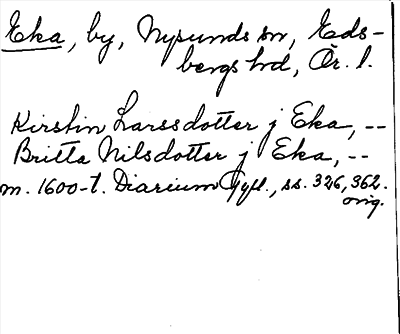 Eka, by, Nysunds sn, Eds-
bergs hd, Ör. l.
Kirstin Larssdotter j Eka, --
Britta Nilsdotter j Eka, --
m. 1600-t. Diarium Gyll., ss. 326, 362.
orig.